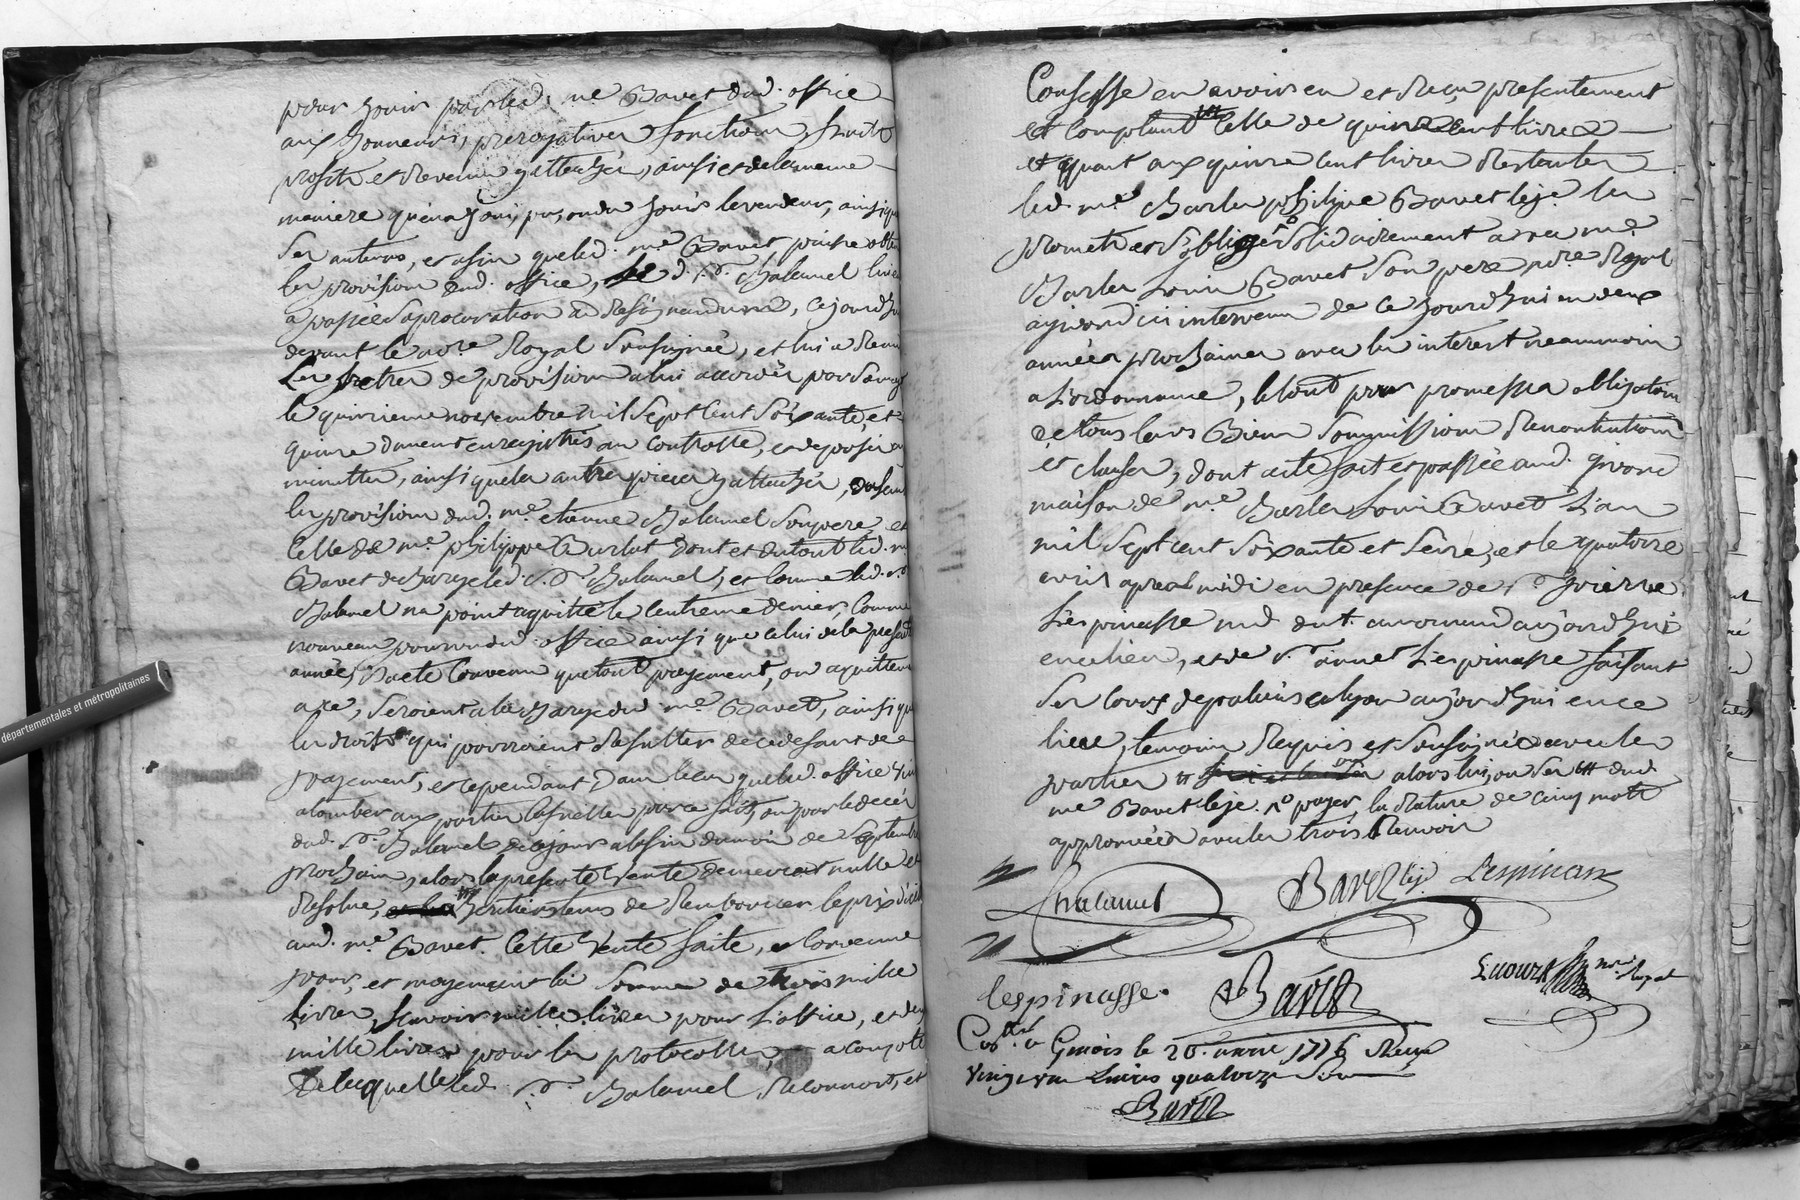 pour jouir par led. me Bavet dud. office
aux honneurs, prerogatives fonctions, fruits
profits et revenus y attachés, ainsi et de la meme
maniere qu'en a joui, pu, ou du jouir le vendeur, ainsi que
ses auteurs, et afin que led. me Bavet puisse obtenir
les provisions dud. office, led. sr. Chalamel lui
a passée sa procuration ad resignandum, cejourdhui
devant le nore royal soussigné, et lui a remis
les lettres de provisions a lui accordées par sa majesté
le quinzieme novembre mil sept cent soixante, et
quinze duement enregistrés au controlle, et deposés
minuttes, ainsi que les autres pieces y attachées, ensemble
les provisions dud. me etienne Chalamel son pere, et
celle de me philippe Burlat dont et du tout led. me
Bavet decharge led. sr. Chalamel, et comme led. sr.
Chalamel na point aquitté le centieme denier, comme
nouveau pourvu dud. office ainsi que celui de la presente
année, il a eté convenu que tout payement, ou aquittement
a ce, seroient a la charge dud. me Bavet, ainsi que
les droits qui pourroient resulter de ce defaut de
payement, et cependant dans le cas que led. office vint
a tomber aux parties casuelles pour ce fait, ou par le decés
dud. sr. Chalamel de ce jour a la fin du mois de septembre
prochain, alors la presente vente demeurera nulle et
resolue, heritiers tenus de rembourser le prix
aud. me Bavet. Cette vente faite, et convenue
pour, et moyennant la somme de trois mille
livres, scavoir mille livres pour l'office, et deux
mille livres pour les protocolles, a compte
de laquelle led. sr. Chalamel, reconnoit, et
Confesse en avoir eu et reçu presentement
et comptant celle de quinze cent livres
et quant aux quinze cent livres restantes
led. me Charles philippe Bavet leje. les
promet et s'oblige solidairement avec me
Charles Louis Bavet son pere nore royal
a givord ici intervenu de ce jourdhui en deux
années prochaines avec les interest neanmoins
a l'ordonnance, le tout par promesses obligations
de tous leurs biens soumissions renonciations
et clauses, dont acte fait et passée aud. givord
maison de me Charles Louis Bavet L'an
mil sept cent soixante et seize, et le quatorze
avril apres midi en presence de sr. pierre
Lespinasse md. dud. aujourdhui
en ce lieu, et de sr. annet Lespinasse faisant
ses cours de palais a lyon aujourdhui en ce
lieu, temoins requis et soussignés avec les
parties alors lui, ou ses dud.
me Bavet leje. payer, la rature de cinq mots
approuvées avec les trois renvois
Chalamel Bavet leje. Lespinasse
Lespinasse. Bavet nore royal
Conlé. a Givors le 20. avril 1776 Reçu
vingt un Livres quatorze sous
Bavet